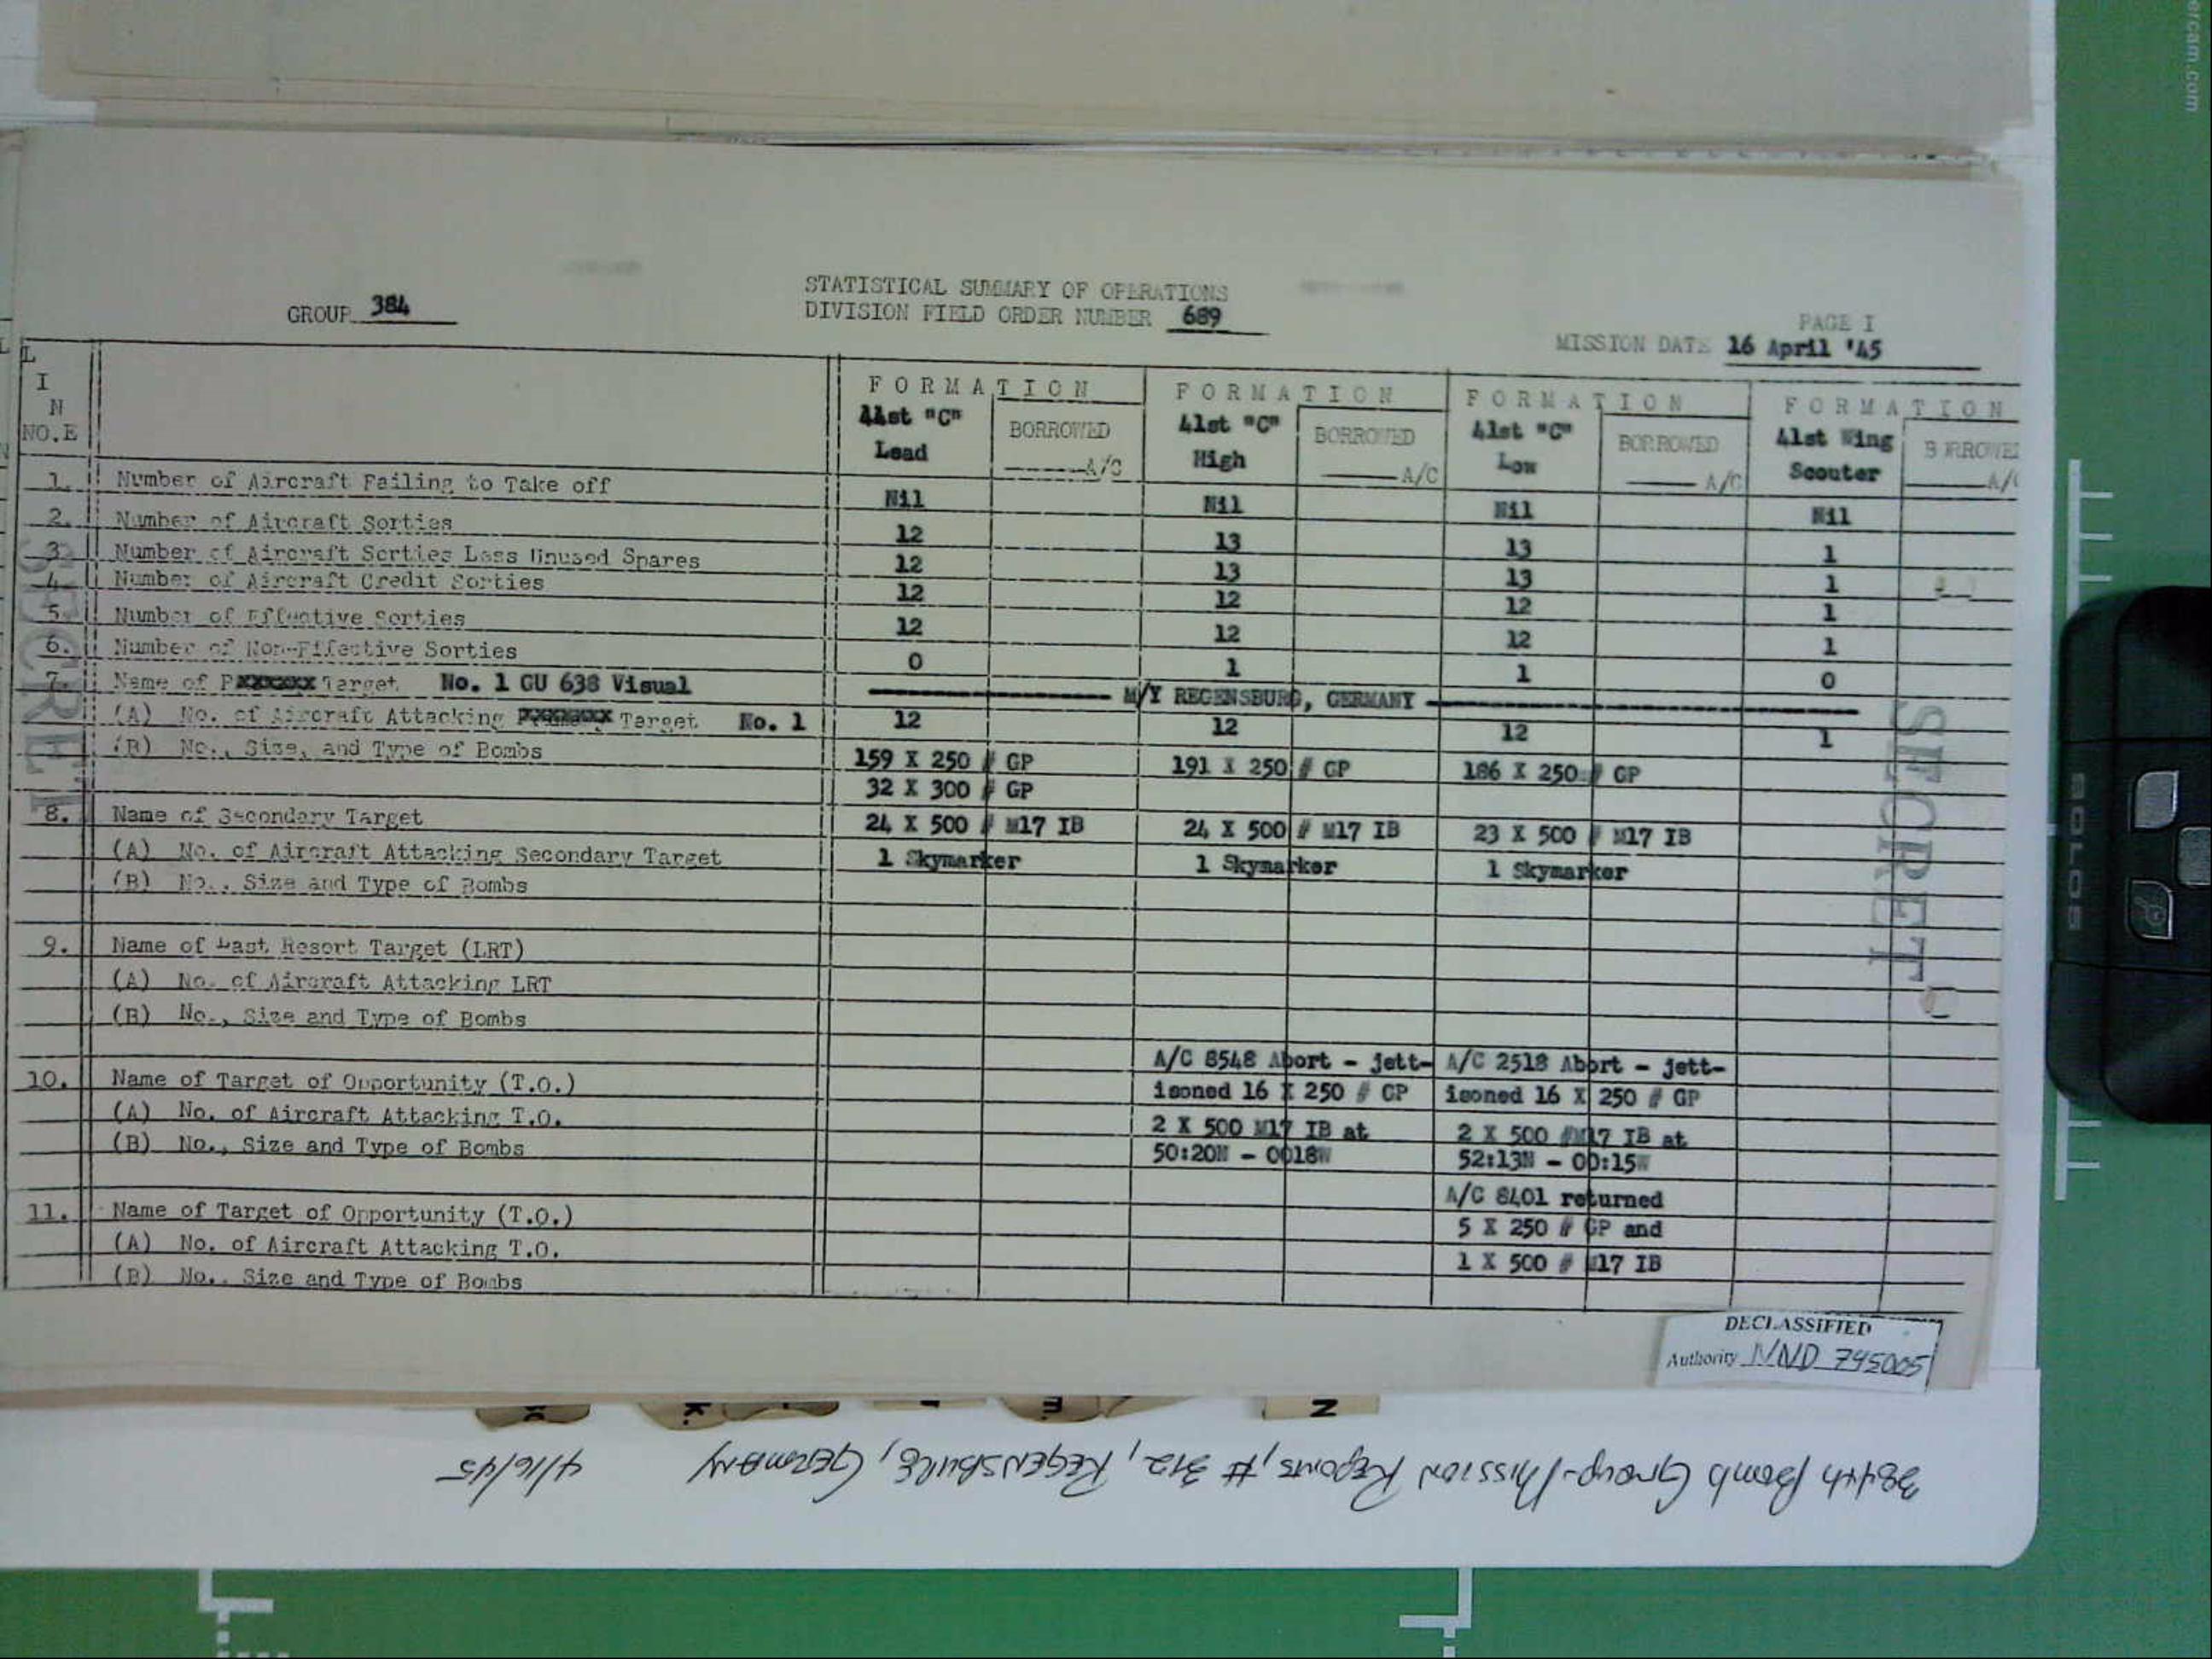 ercam.com
STATISTICAL SUMMARY OF OPERATIONS
GROUP 384
DIVISION FIELD ORDER NUMBER 689
PAGE I
MISSION DATE 16 April '45
LINE NO.
FORMATION 41st "C" Lead BORROWED A/C
FORMATION 41st "C" High BORROWED A/C
FORMATION 41st "C" Low BORROWED A/C
FORMATION 41st Wing Scouter BORROWED A/C
1. Number of Aircraft Failing to Take off Nil Nil Nil Nil
2. Number of Aircraft Sorties 12 13 13 1
3. Number of Aircraft Sorties Less Unused Spares 12 13 13 1
4. Number of Aircraft Credit Sorties 12 12 12 1
5. Number of Effective Sorties 12 12 12 1
6. Number of Non-Effective Sorties 0 1 1 0
7. Name of Target No. 1 GU 638 Visual M/Y REGENSBURG, GERMANY
(A) No. of Aircraft Attacking Target No. 1 12 12 12 1
(B) No., Size, and Type of Bombs 159 X 250 # GP 191 X 250 # GP 186 X 250 # GP
32 X 300 # GP
8. Name of Secondary Target 24 X 500 # M17 IB 24 X 500 # M17 IB 23 X 500 # M17 IB
(A) No. of Aircraft Attacking Secondary Target 1 Skymarker 1 Skymarker 1 Skymarker
(B) No., Size and Type of Bombs
9. Name of Last Resort Target (LRT)
(A) No. of Aircraft Attacking LRT
(B) No., Size and Type of Bombs
A/C 8548 Abort - jett- A/C 2518 Abort - jett-
10. Name of Target of Opportunity (T.O.) isoned 16 X 250 # GP isoned 16 X 250 # GP
(A) No. of Aircraft Attacking T.O. 2 X 500 M17 IB at 2 X 500 #M17 IB at
(B) No., Size and Type of Bombs 50:20N - 0018W 52:13N - 00:15W
A/C 8401 returned
11. Name of Target of Opportunity (T.O.) 5 X 250 # GP and
(A) No. of Aircraft Attacking T.O. 1 X 500 # M17 IB
(B) No., Size and Type of Bombs
SECRET
SECRET
DECLASSIFIED
Authority NND 745005
N
384th Bomb Group-Mission Reports, # 312, REGENSBURG, GERMANY 4/16/45